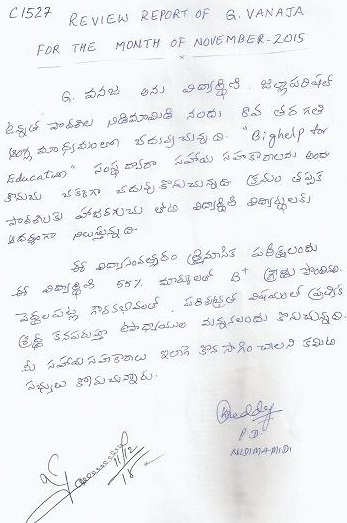 C1527
REVIEW REPORT OF G. VANAJA
FOR THE MONTH OF NOVEMBER-2015
G. వనజ అను విద్యార్థిని జిల్లాపరిషత్
ఉన్నత పాఠశాల నిడిమామిడి నందు 8వ తరగతి
ఆంగ్ల మాధ్యమంలో చదువుచున్నది. "Bighelp for
Education" సంస్థ ద్వారా సహాయ సహకారాలను అందు
కొనుచు చక్కగా చదువు కొనుచున్నది. క్రమం తప్పక
పాఠశాలకు హాజరగుచు తోటి విద్యార్థిని విద్యార్థులకు
ఆదర్శంగా నిలుస్తున్నది.
ఈ విద్యాసంవత్సరం త్రైమాసిక పరీక్షలందు
ఈ విద్యార్థిని 55% మార్కులతో B+ గ్రేడు పొందినది.
పెద్దలపట్ల గౌరవభావంతో, పరిశుభ్రత విషయంలో ప్రత్యేక
శ్రద్ధ కనపరుస్తూ ఉపాధ్యాయుల మన్ననలందు కొనుచున్నది.
మీ సహాయ సహకారాలు ఇలాగే కొనసాగించాలని కమిటి
సభ్యులు కోరుచున్నారు.
Reddy
P.D.
NIDIMAMIDI
11/12